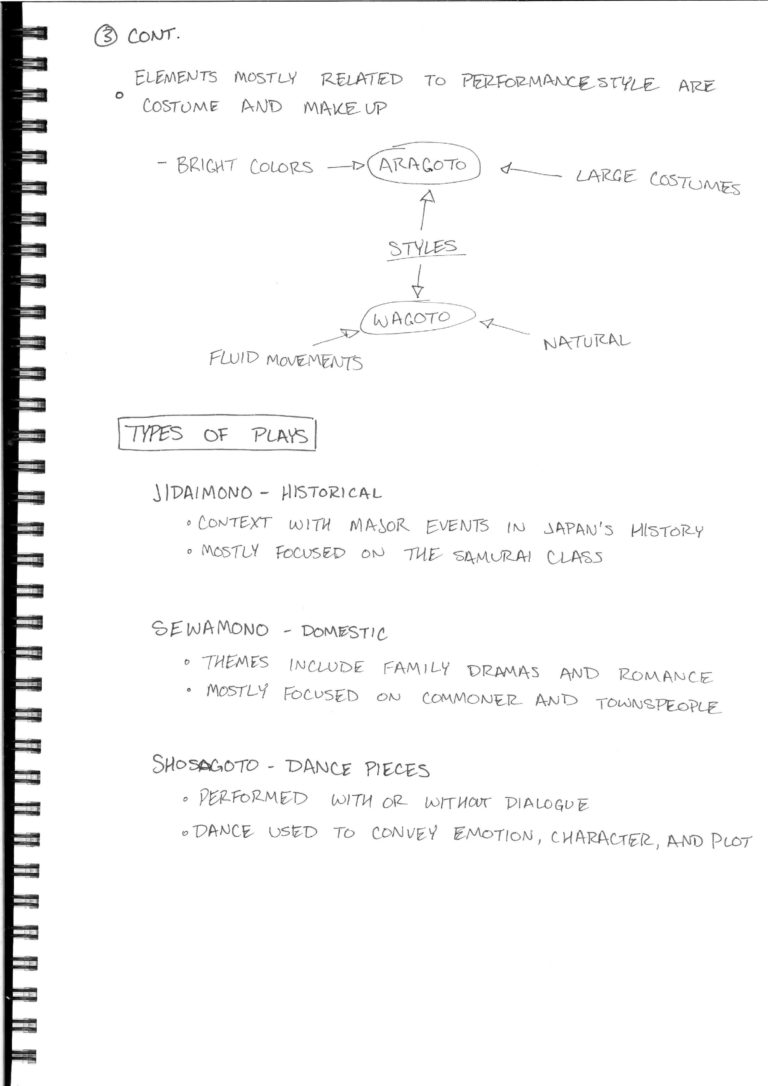 ③ CONT.
° ELEMENTS MOSTLY RELATED TO PERFORMANCE STYLE ARE
COSTUME AND MAKEUP
- BRIGHT COLORS → ARAGOTO ← LARGE COSTUMES
STYLES
WAGOTO
FLUID MOVEMENTS
NATURAL
TYPES OF PLAYS
JIDAIMONO - HISTORICAL
° CONTEXT WITH MAJOR EVENTS IN JAPAN'S HISTORY
° MOSTLY FOCUSED ON THE SAMURAI CLASS
SEWAMONO - DOMESTIC
° THEMES INCLUDE FAMILY DRAMAS AND ROMANCE
° MOSTLY FOCUSED ON COMMONER AND TOWNSPEOPLE
SHOSAGOTO - DANCE PIECES
° PERFORMED WITH OR WITHOUT DIALOGUE
° DANCE USED TO CONVEY EMOTION, CHARACTER, AND PLOT